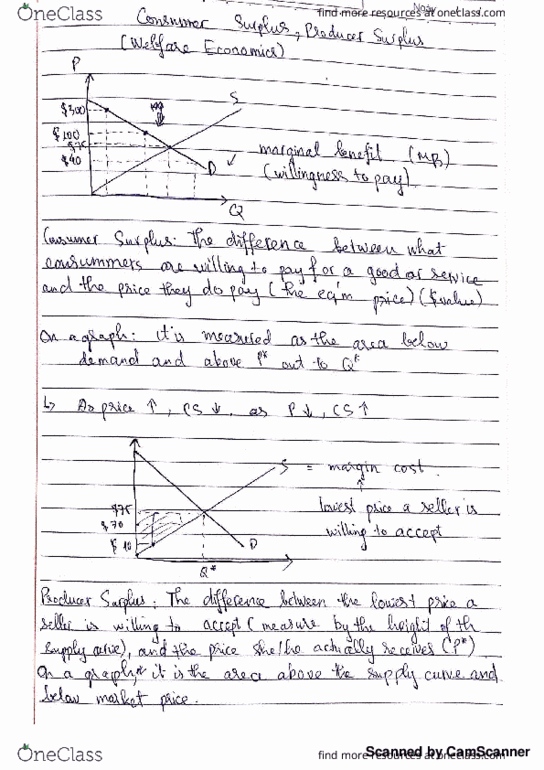 OneClass
find more resources at oneclass.com
Consumer Surplus, Producer Surplus
(Welfare Economics)
P
S
$300
$100
$75
$40
D
Q
marginal benefit (MB)
(willingness to pay)
Consumer Surplus: The difference between what
consummers are willing to pay for a good or service
and the price they do pay (the eq'm price) ($value)
On a graph: it is measured as the area below
demand and above P* out to Q*
↳ As price ↑, CS ↓, as P ↓, CS ↑
S = margin cost.
$75
$70
$10
D
Q*
lowest price a seller is
willing to accept
Producer Surplus: The difference between the lowest price a
seller is willing to accept (measure by the height of th
supply curve), and the price she/he actually receives (P*)
On a graph, it is the area above the supply curve and
below market price.
OneClass
find more resources at oneclass.com
Scanned by CamScanner